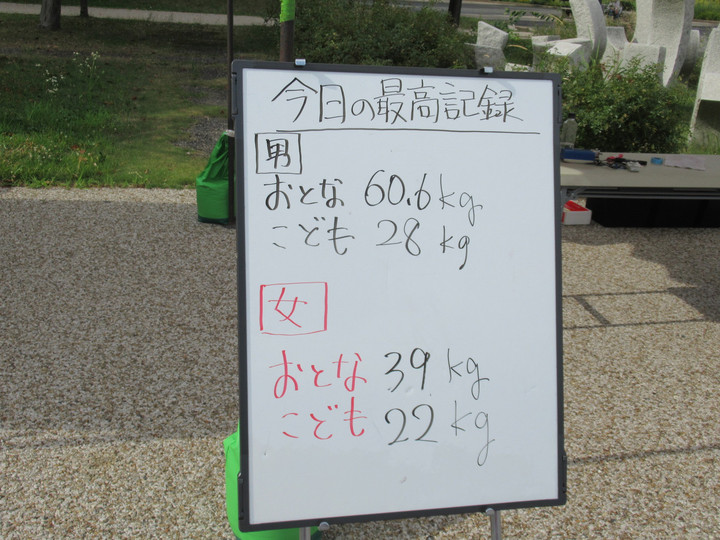 今日の最高記録
男
おとな 60.6kg
こども 28kg
女
おとな 39kg
こども 22kg